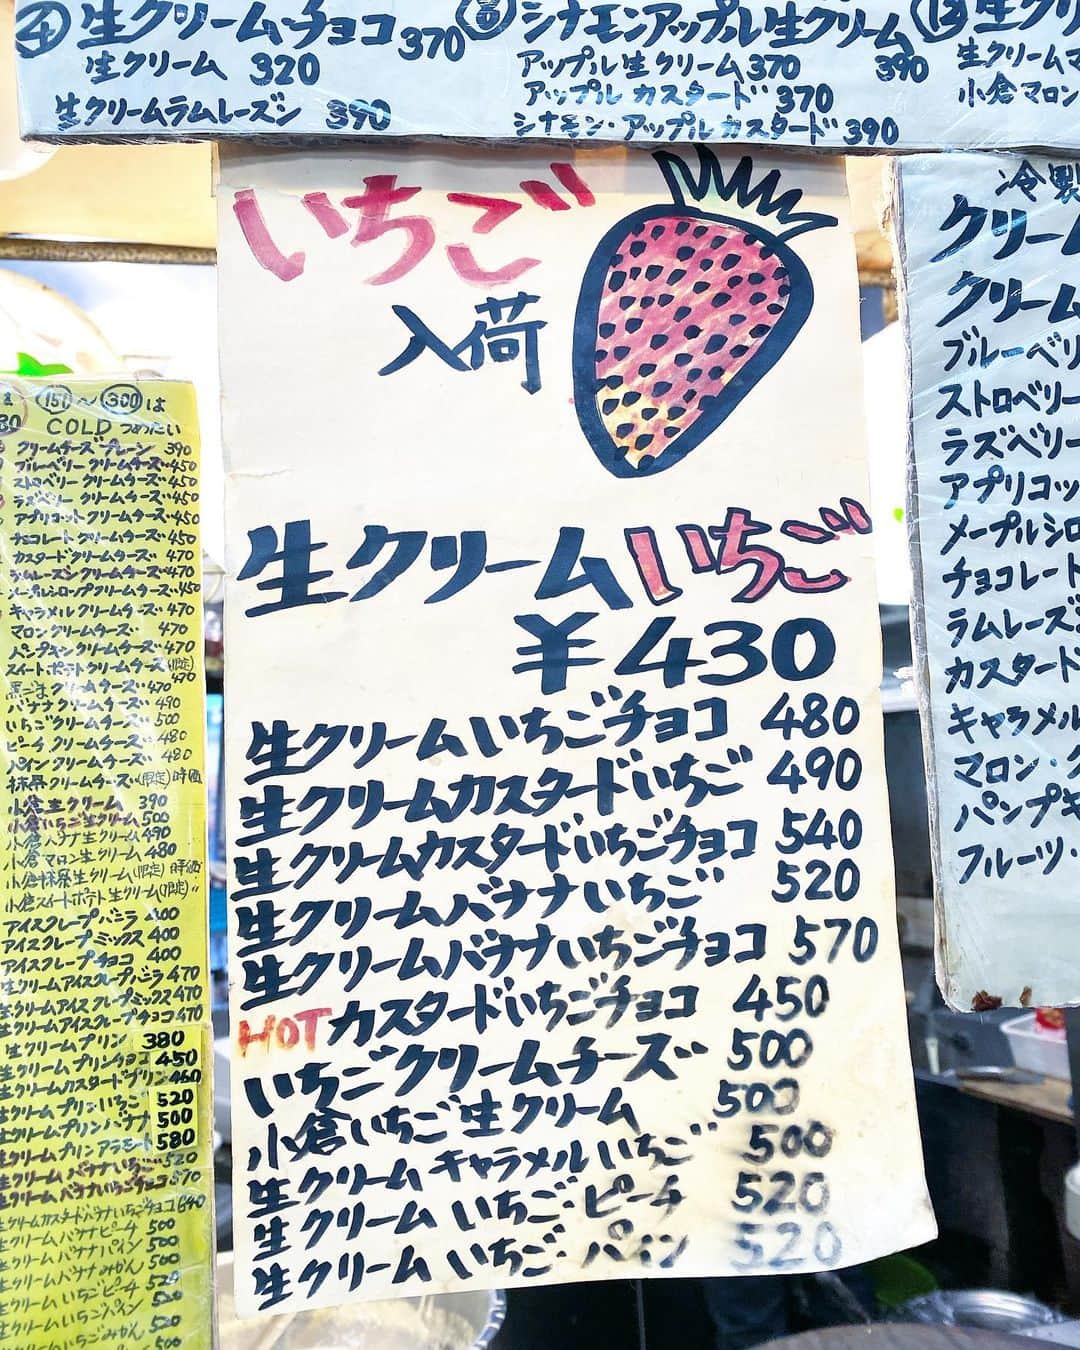 ④ 生クリームチョコ 370
生クリーム 320
生クリームラムレーズン 390
⑧ シナモンアップル生クリーム 390
アップル生クリーム 370
アップル カスタード 370
シナモン・アップルカスタード 390
⑫ 生ク
生クリームマ
小倉マロン
いちご
入荷
生クリームいちご
¥430
生クリームいちごチョコ 480
生クリームカスタードいちご 490
生クリームカスタードいちごチョコ 540
生クリームバナナいちご 520
生クリームバナナいちごチョコ 570
HOTカスタードいちごチョコ 450
いちごクリームチーズ 500
小倉いちご生クリーム 500
生クリームキャラメルいちご 500
生クリームいちご・ピーチ 520
生クリームいちご・パイン 520
151〜300は
COLD つめたい
クリームチーズプレーン 390
ブルーベリークリームチーズ 450
ストロベリークリームチーズ 450
ラズベリークリームチーズ 450
アプリコットクリームチーズ 450
チョコレートクリームチーズ 450
カスタードクリームチーズ 470
ラムレーズンクリームチーズ 470
メープルシロップクリームチーズ 450
キャラメルクリームチーズ 470
マロンクリームチーズ 470
パンプキンクリームチーズ 470
スイートポテトクリームチーズ(限定) 470
黒ごまクリームチーズ 470
バナナクリームチーズ 490
いちごクリームチーズ 500
ピーチクリームチーズ 480
パインクリームチーズ 480
抹茶クリームチーズ(限定)時価
小倉生クリーム 390
小倉いちご生クリーム 500
小倉バナナ生クリーム 490
小倉マロン生クリーム 480
小倉抹茶生クリーム(限定)時価
小倉スイートポテト生クリーム(限定)〃
アイスクレープバニラ 400
アイスクレープミックス 400
アイスクレープチョコ 400
生クリームアイスクレープバニラ 470
生クリームアイスクレープミックス 470
生クリームアイスクレープチョコ 470
生クリームプリン 380
生クリームプリンチョコ 450
生クリームカスタードプリン 460
生クリームプリンいちご 520
生クリームプリンバナナ 500
生クリームプリンアラモード 580
生クリームバナナいちご 520
生クリームバナナいちごチョコ 570
生クリームカスタードバナナいちごチョコ 640
生クリームバナナピーチ 500
生クリームバナナパイン 500
生クリームバナナみかん 500
生クリームいちごピーチ 520
生クリームいちごパイン 520
生クリームいちごみかん 520
500
冷製
クリーム
クリーム
ブルーベリ
ストロベリー
ラズベリー
アプリコッ
メープルシロ
チョコレート
ラムレーズン
カスタード
キャラメル
マロン・ク
パンプキ
フルーツ・